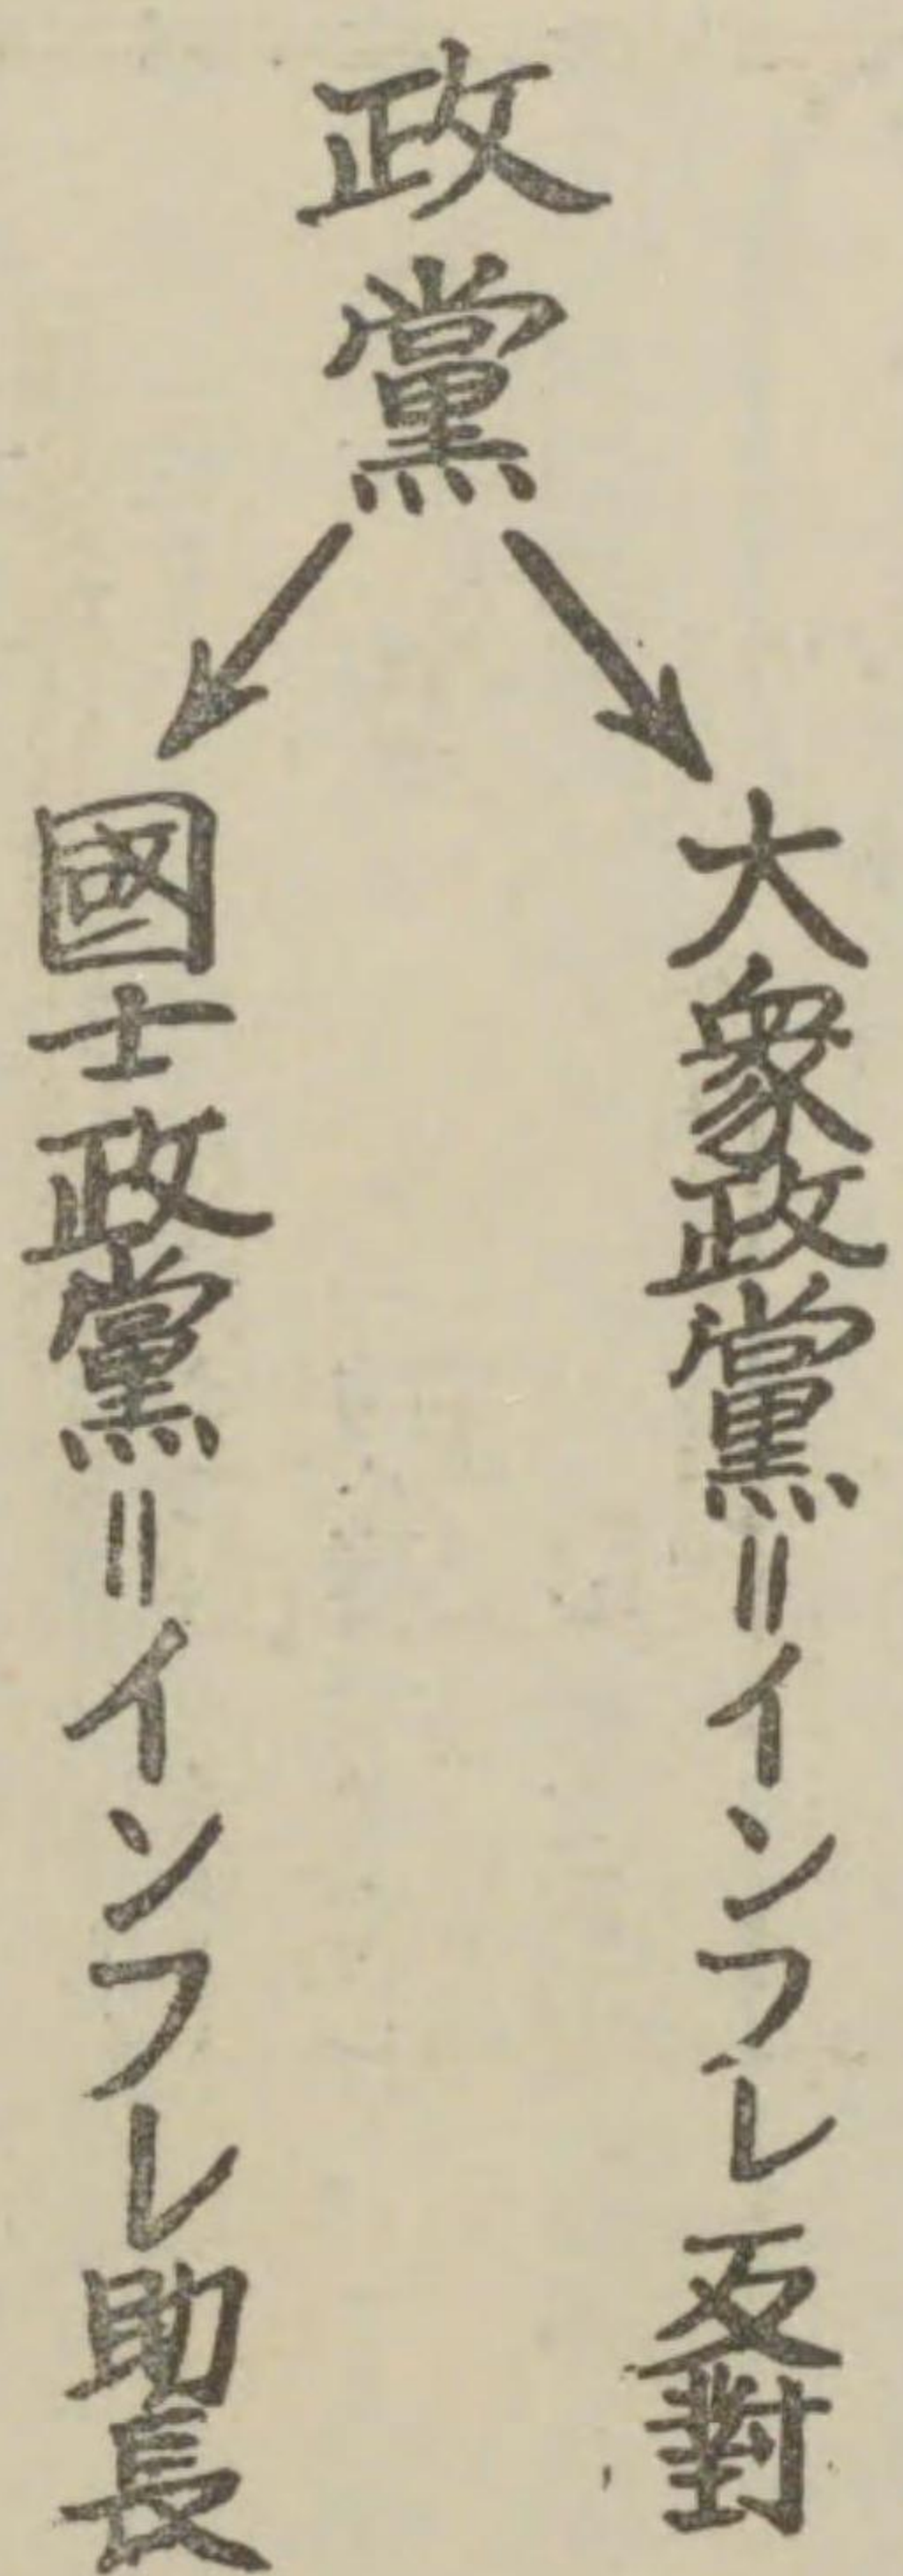 政黨
大衆政黨＝インフレ反對
國士政黨＝インフレ助長